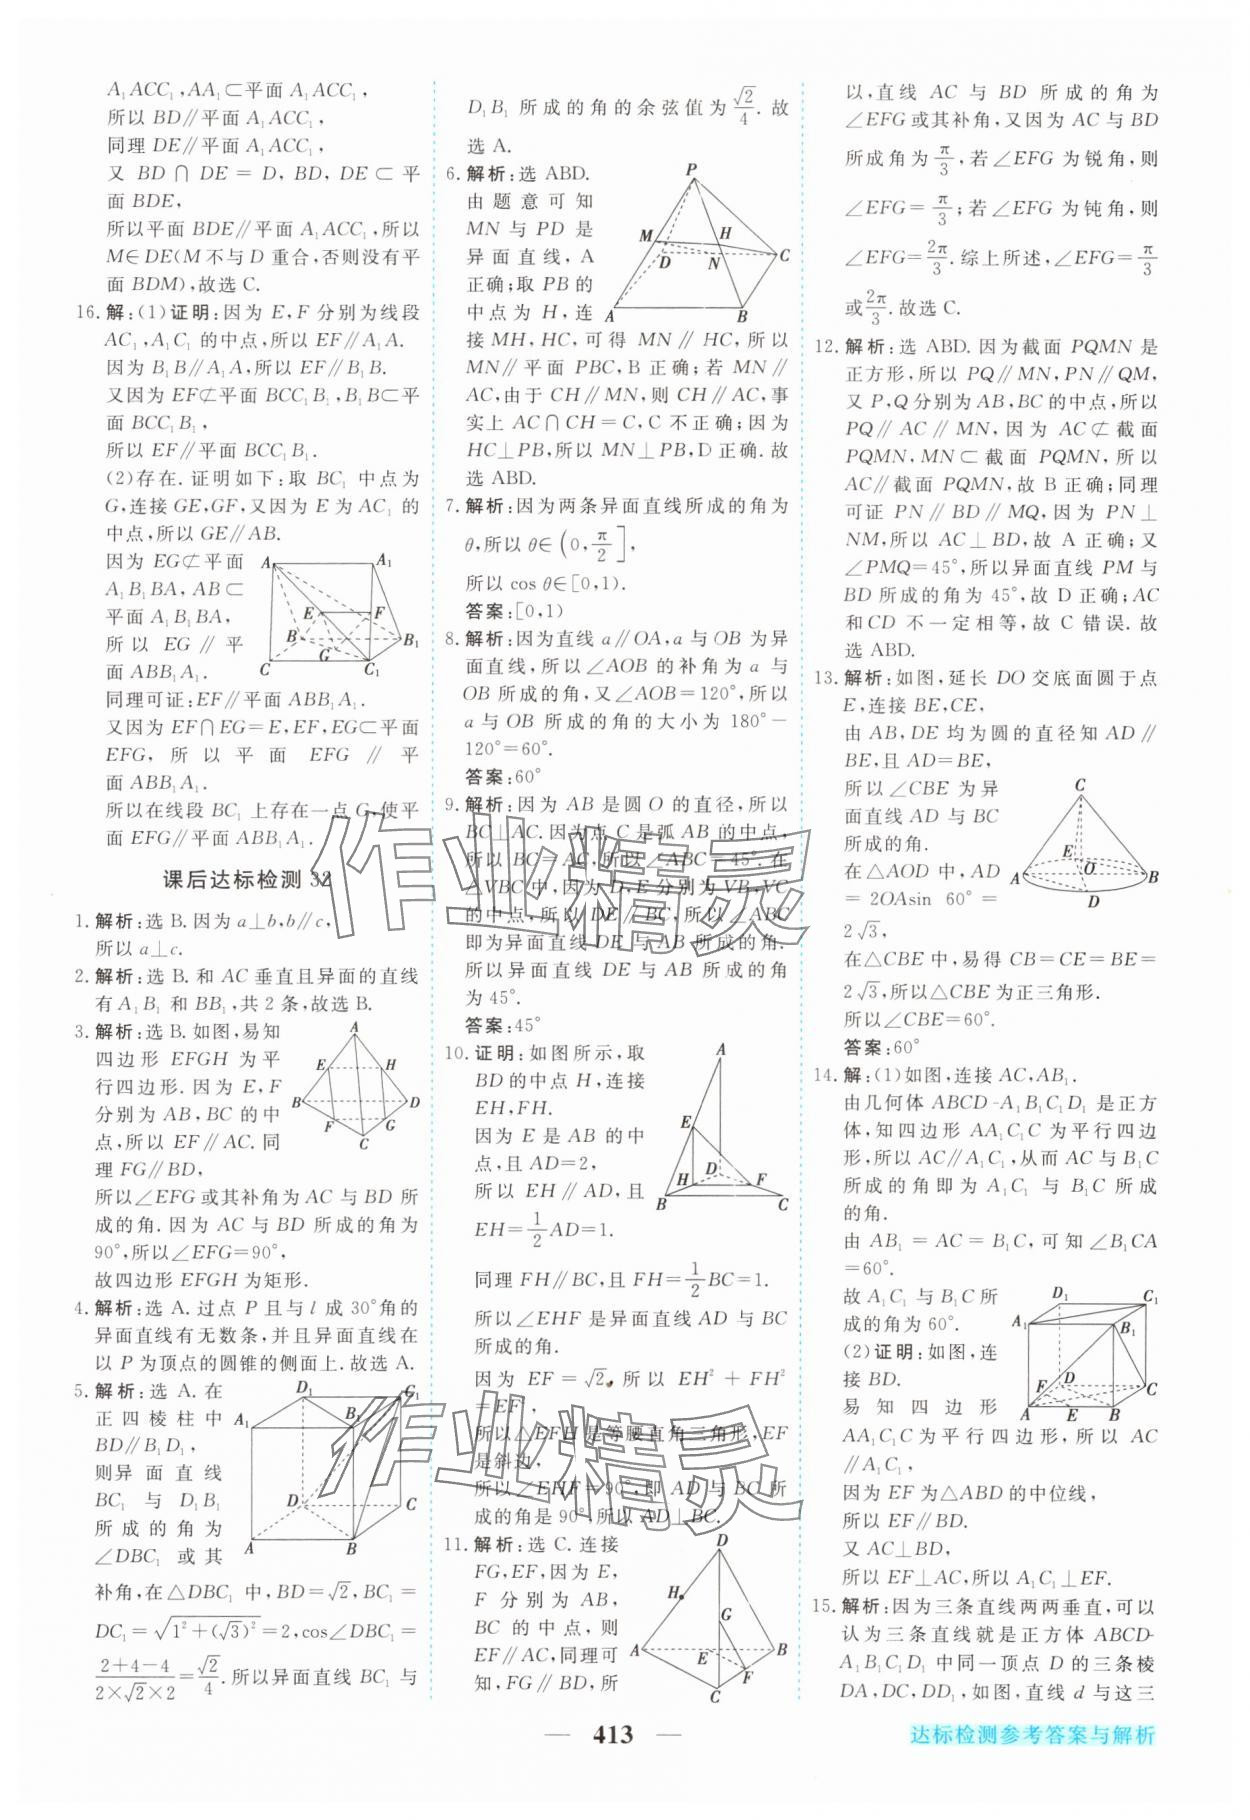 A₁ACC₁,AA₁⊂平面A₁ACC₁,
所以BD∥平面A₁ACC₁,
同理DE∥平面A₁ACC₁,
又BD∩DE=D,BD,DE⊂平
面BDE,
所以平面BDE∥平面A₁ACC₁,所以
M∈DE(M不与D重合,否则没有平
面BDM),故选C.
16.解:(1)证明:因为E,F分别为线段
AC₁,A₁C₁的中点,所以EF∥A₁A.
因为B₁B∥A₁A,所以EF∥B₁B.
又因为EF⊄平面BCC₁B₁,B₁B⊂平
面BCC₁B₁,
所以EF∥平面BCC₁B₁.
(2)存在.证明如下:取BC₁中点为
G,连接GE,GF,又因为E为AC₁的
中点,所以GE∥AB.
因为EG⊄平面
A₁B₁BA,AB⊂
平面A₁B₁BA,
所以EG∥平
面ABB₁A₁.
同理可证:EF∥平面ABB₁A₁.
又因为EF∩EG=E,EF,EG⊂平面
EFG,所以平面EFG∥平
面ABB₁A₁.
所以在线段BC₁上存在一点G,使平
面EFG∥平面ABB₁A₁.
课后达标检测32
1.解析:选B.因为a⊥b,b∥c,
所以a⊥c.
2.解析:选B.和AC垂直且异面的直线
有A₁B₁和BB₁,共2条,故选B.
3.解析:选B.如图,易知
四边形EFGH为平
行四边形.因为E,F
分别为AB,BC的中
点,所以EF∥AC.同
理FG∥BD,
所以∠EFG或其补角为AC与BD所
成的角.因为AC与BD所成的角为
90°,所以∠EFG=90°,
故四边形EFGH为矩形.
4.解析:选A.过点P且与l成30°角的
异面直线有无数条,并且异面直线在
以P为顶点的圆锥的侧面上.故选A.
5.解析:选A.在
正四棱柱中
BD∥B₁D₁,
则异面直线
BC₁与D₁B₁
所成的角为
∠DBC₁或其
补角,在△DBC₁中,BD=√2,BC₁=
DC₁=√(1²+(√3)²)=2,cos∠DBC₁=
(2+4-4)/(2×√2×2)=√2/4.所以异面直线BC₁与
D₁B₁所成的角的余弦值为√2/4.故
选A.
6.解析:选ABD.
由题意可知
MN与PD是
异面直线,A
正确;取PB的
中点为H,连
接MH,HC,可得MN∥HC,所以
MN∥平面PBC,B正确;若MN∥
AC,由于CH∥MN,则CH∥AC,事
实上AC∩CH=C,C不正确;因为
HC⊥PB,所以MN⊥PB,D正确.故
选ABD.
7.解析:因为两条异面直线所成的角为
θ,所以θ∈(0,π/2],
所以cos θ∈[0,1).
答案:[0,1)
8.解析:因为直线a∥OA,a与OB为异
面直线,所以∠AOB的补角为a与
OB所成的角,又∠AOB=120°,所以
a与OB所成的角的大小为180°-
120°=60°.
答案:60°
9.解析:因为AB是圆O的直径,所以
BC⊥AC.因为点C是弧AB的中点,
所以BC=AC,所以∠ABC=45°.在
△VBC中,因为D,E分别为VB,VC
的中点,所以DE∥BC,所以∠ABC
即为异面直线DE与AB所成的角.
所以异面直线DE与AB所成的角
为45°.
答案:45°
10.证明:如图所示,取
BD的中点H,连接
EH,FH.
因为E是AB的中
点,且AD=2,
所以EH∥AD,且
EH=1/2AD=1.
同理FH∥BC,且FH=1/2BC=1.
所以∠EHF是异面直线AD与BC
所成的角.
因为EF=√2,所以EH²+FH²
=EF²,
所以△EFH是等腰直角三角形,EF
是斜边,
所以∠EHF=90°,即AD与BC所
成的角是90°,所以AD⊥BC.
11.解析:选C.连接
FG,EF,因为E,
F分别为AB,
BC的中点,则
EF∥AC,同理可
知,FG∥BD,所
以,直线AC与BD所成的角为
∠EFG或其补角,又因为AC与BD
所成角为π/3,若∠EFG为锐角,则
∠EFG=π/3;若∠EFG为钝角,则
∠EFG=2π/3.综上所述,∠EFG=π/3
或2π/3.故选C.
12.解析:选ABD.因为截面PQMN是
正方形,所以PQ∥MN,PN∥QM,
又P,Q分别为AB,BC的中点,所以
PQ∥AC∥MN,因为AC⊄截面
PQMN,MN⊂截面PQMN,所以
AC∥截面PQMN,故B正确;同理
可证PN∥BD∥MQ,因为PN⊥
NM,所以AC⊥BD,故A正确;又
∠PMQ=45°,所以异面直线PM与
BD所成的角为45°,故D正确;AC
和CD不一定相等,故C错误.故
选ABD.
13.解析:如图,延长DO交底面圆于点
E,连接BE,CE,
由AB,DE均为圆的直径知AD∥
BE,且AD=BE,
所以∠CBE为异
面直线AD与BC
所成的角.
在△AOD中,AD
=2OAsin 60°=
2√3,
在△CBE中,易得CB=CE=BE=
2√3,所以△CBE为正三角形.
所以∠CBE=60°.
答案:60°
14.解:(1)如图,连接AC,AB₁.
由几何体ABCD-A₁B₁C₁D₁是正方
体,知四边形AA₁C₁C为平行四边
形,所以AC∥A₁C₁,从而AC与B₁C
所成的角即为A₁C₁与B₁C所成
的角.
由AB₁=AC=B₁C,可知∠B₁CA
=60°.
故A₁C₁与B₁C所
成的角为60°.
(2)证明:如图,连
接BD.
易知四边形
AA₁C₁C为平行四边形,所以AC
∥A₁C₁,
因为EF为△ABD的中位线,
所以EF∥BD.
又AC⊥BD,
所以EF⊥AC,所以A₁C₁⊥EF.
15.解析:因为三条直线两两垂直,可以
认为三条直线就是正方体ABCD-
A₁B₁C₁D₁中同一顶点D的三条棱
DA,DC,DD₁,如图,直线d与这三
— 413 —
达标检测参考答案与解析
作业精灵
作业精灵